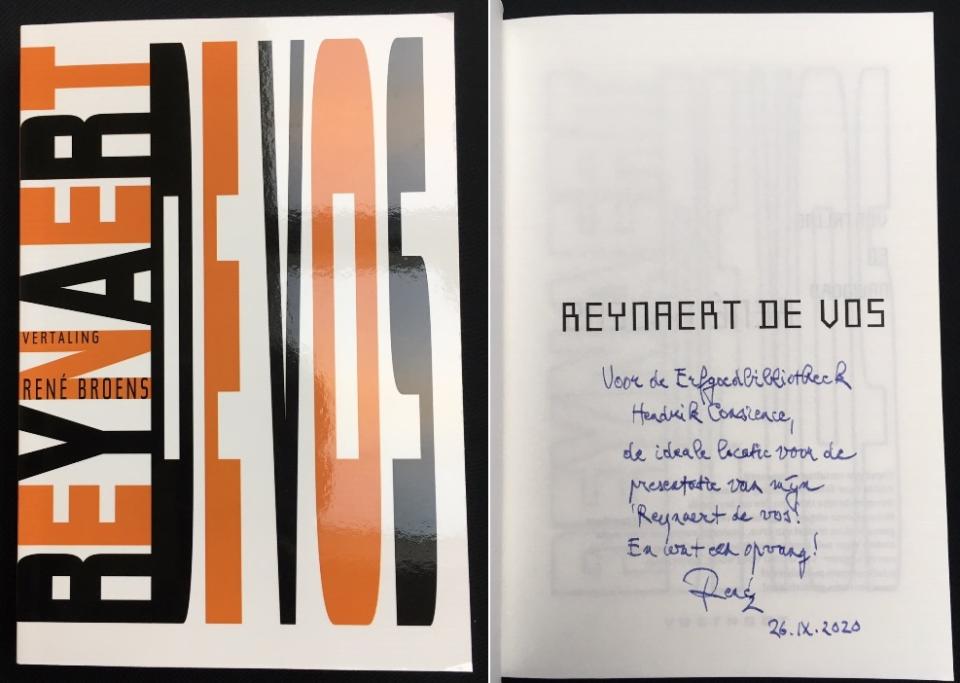 REYNAERT
DE VOS
VERTALING
RENÉ BROENS
REYNAERT DE VOS
Voor de Erfgoedbibliotheek
Hendrik Conscience,
de ideale locatie voor de
presentatie van mijn
'Reynaert de vos'.
En wat een opvang!
René
26.IX.2020